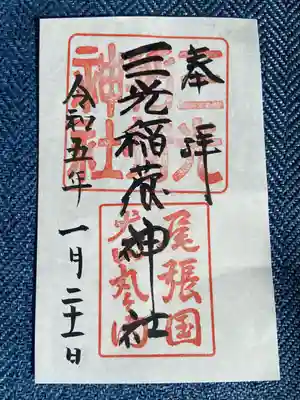 奉拝
三光稲荷神社
令和五年 一月二十一日
三光稲荷神社
尾張国
犬山丸の内